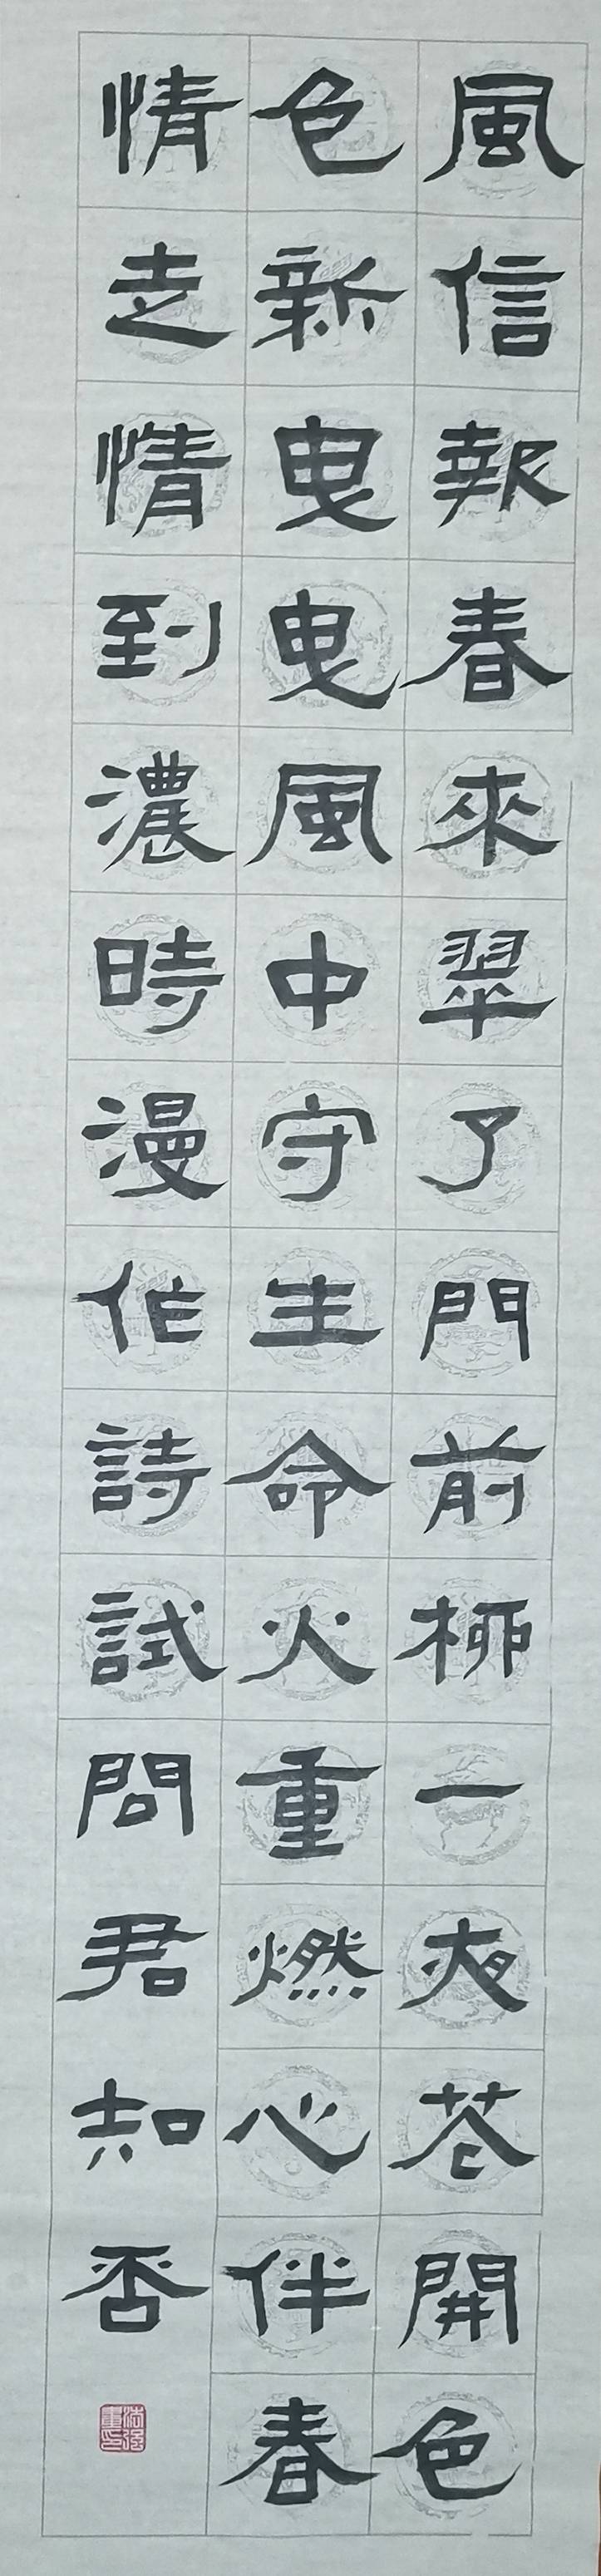 風信報春來翠了門前桺一夜苍開色
色新曳曳風中守生命火重燃心伴春
情走情到濃時漫作詩試問君知否